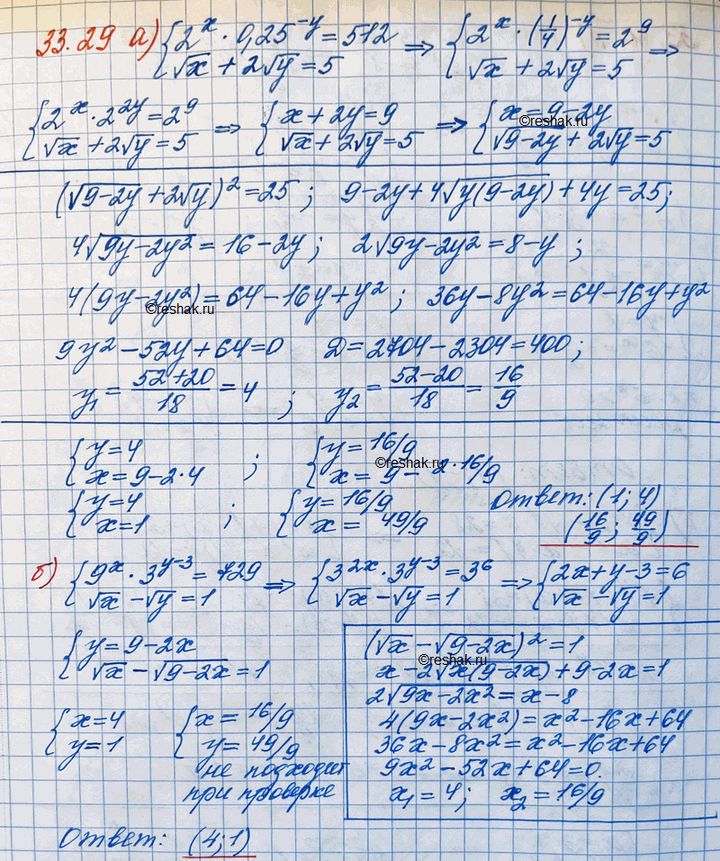 33.29 а) {2^x · 0,25^-y = 512 ⇒ {2^x · (1/4)^-y = 2^9 ⇒
√x + 2√y = 5 √x + 2√y = 5
©reshak.ru
{2^x · 2^2y = 2^9 ⇒ {x + 2y = 9 ⇒ {x = 9 - 2y
√x + 2√y = 5 √x + 2√y = 5 √9-2y + 2√y = 5
(√9-2y + 2√y)² = 25 ; 9 - 2y + 4√y(9-2y) + 4y = 25;
4√9y-2y² = 16 - 2y ; 2√9y-2y² = 8 - y ;
4(9y - 2y²) = 64 - 16y + y² ; 36y - 8y² = 64 - 16y + y²
©reshak.ru
9y² - 52y + 64 = 0 D = 2704 - 2304 = 400 ;
y₁ = 52+20/18 = 4 ; y₂ = 52-20/18 = 16/9
{y = 4 ; {y = 16/9
x = 9 - 2·4 x = 9 - 2·16/9
©reshak.ru
{y = 4 ; {y = 16/9 Ответ: (1; 4)
x = 1 x = 49/9 (16/9; 49/9)
б) {9^x · 3^y-3 = 729 ⇒ {3^2x · 3^y-3 = 3^6 ⇒ {2x + y - 3 = 6
√x - √y = 1 √x - √y = 1 √x - √y = 1
{y = 9 - 2x
√x - √9-2x = 1
(√x - √9-2x)² = 1
©reshak.ru
x - 2√x(9-2x) + 9 - 2x = 1
2√9x-2x² = x - 8
4(9x - 2x²) = x² - 16x + 64
36x - 8x² = x² - 16x + 64
9x² - 52x + 64 = 0.
x₁ = 4 ; x₂ = 16/9
{x = 4 {x = 16/9
y = 1 y = 49/9
не подходит
при проверке
Ответ: (4; 1)